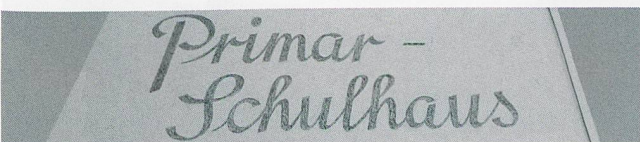 Primar –
Schulhaus